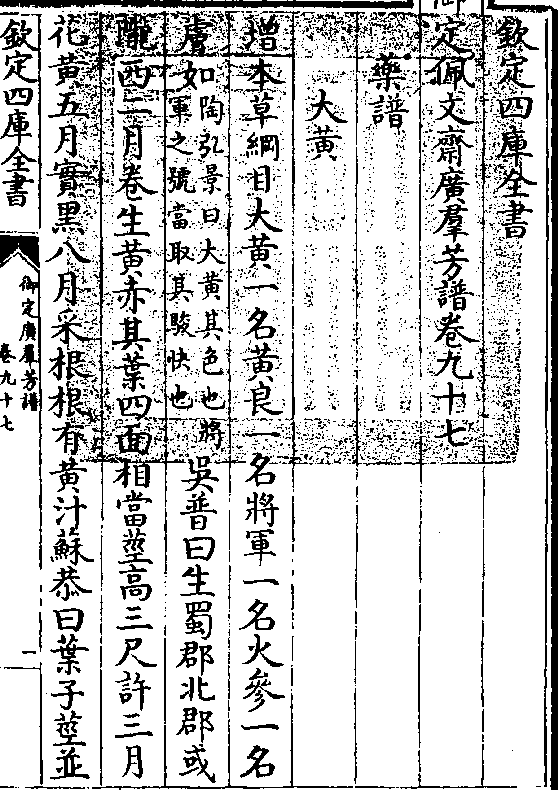 欽定四庫全書
定佩文齋廣羣芳譜卷九十七
藥譜
大黃
增本草綱目大黃一名黃良一名將軍一名火參一名
膚如陶弘景曰大黃其色也將軍之號當取其駿快也吳普曰生蜀郡北郡或
隴西二月卷生黃赤其葉四面相當莖高三尺許三月
花黃五月實黑八月采根根有黃汁蘇恭曰葉子莖並
欽定四庫全書
御定廣羣芳譜
卷九十七
一